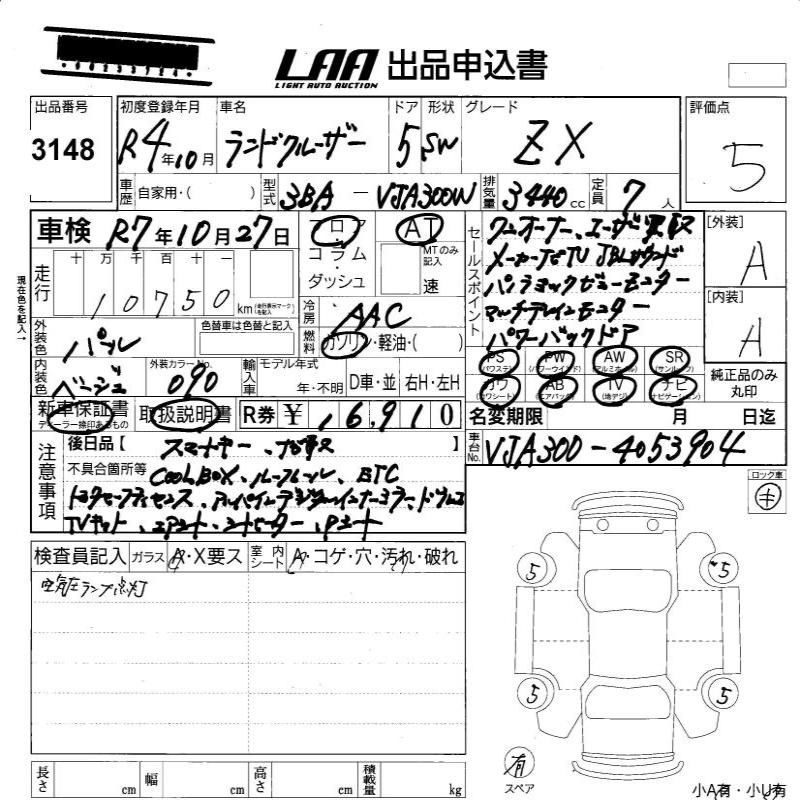 LAA 出品申込書
LIGHT AUTO AUCTION
出品番号 初度登録年月 車名 ドア 形状 グレード 評価点
3148 R4年10月 ランドクルーザー 5 SW ZX 5
車歴 自家用・( ) 型式 3BA - VJA300W 排気量 3440cc 定員 7人
車検 R7年10月27日 フロア AT セールスポイント ワンオーナー、ユーザー買取 [外装]
コラム・ MTのみ記入 メーカーナビTV JBLサウンド A
走行 十 万 千 百 十 一 ダッシュ 速 パノラミックビューモニター
10750 km (走行表示マークを記入) マルチテレインモニター [内装]
現在色を記入→ 冷房 AAC パワーバックドア A
外装色 パール 色替車は色替と記入 燃料 ガソリン・軽油・( )
PS (パワステ) PW (パワーウインド) AW (アルミホイール) SR (サンルーフ)
内装色 ベージュ 外装カラーNo. 090 輸入車 モデル年式 年・不明 D車・並 右H・左H
カワ (カワシート) AB (エアバック) TV (地デジ) ナビ (ナビゲーション) 純正品のみ丸印
新車保証書 ディーラー捺印あるもの 取扱説明書 R券 ¥16,910 名変期限 月 日迄
注意事項 後日品【 スマートキー、ナビ取 】 車台No. VJA300-4053904
不具合箇所等 COOLBOX、ルーフレール、ETC
トヨタセーフティセンス、アルパインデジタルインナーミラー、ドラレコ
TVキット、エアシート、シートヒーター、Pシート
ロック車 キ
検査員記入 ガラス A・X要ス 室内シート A・コゲ・穴・汚れ・破れ
空気圧ランプ点灯
5 5
5 5
有
スペア
長さ cm 幅 cm 高さ cm 積載量 kg 小A有・小U有